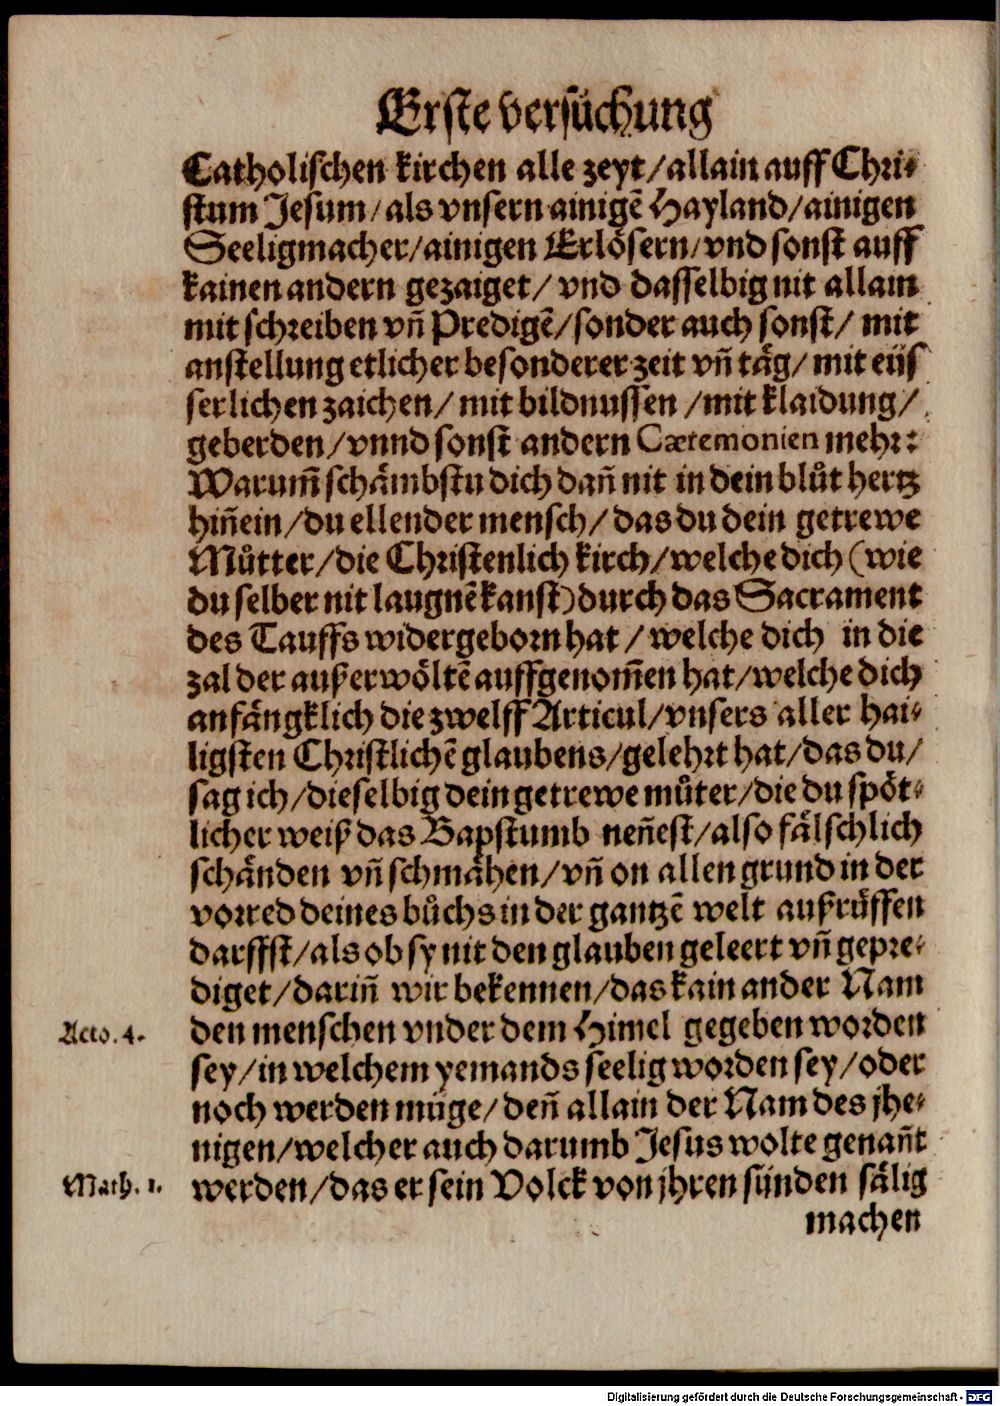 Erste versůchung
Catholischen kirchen alle zeyt/allain auff Chri⸗
stum Jesum/als vnsern ainigẽ Hayland/ainigen
Seeligmacher/ainigen Erlösern/vnd sonst auff
kainen andern gezaiget/ vnd dasselbig nit allain
mit schreiben vñ Predigẽ/sonder auch sonst/ mit
anstellung etlicher besonderer zeit vñ täg/ mit eüs
serlichen zaichen/ mit bildnussen /mit klaidung/
geberden/vnnd sonst andern Cæremonien mehr:
Warum̃ schämbstu dich dañ nit in dein blůt hertz
hiñein/du ellender mensch/das du dein getrewe
Můtter/die Christenlich kirch/welche dich (wie
du selber nit laugnẽ kanst) durch das Sacrament
des Tauffs widergeborn hat/ welche dich in die
zal der außerwöltẽ auffgenom̃en hat/welche dich
anfängklich die zwelff Articul/vnsers aller hai⸗
ligsten Christlichẽ glaubens/gelehrt hat/das du/
sag ich/dieselbig dein getrewe můter/die du spöt⸗
licher weiß das Bapstumb neñest/also fälschlich
schänden vñ schmähen/vñ on allen grund in der
vorred deines bůchs in der gantzẽ welt außrůffen
darffst/als ob sy nit den glauben geleert vñ gepre⸗
diget/dariñ wir bekennen/das kain ander Nam
Acto. 4. den menschen vnder dem Himel gegeben worden
sey/in welchem yemands seelig worden sey/oder
noch werden müge/deñ allain der Nam des jhe⸗
nigen/welcher auch darumb Jesus wolte genañt
Math. 1. werden/das er sein Volck von jhren sünden sälig
machen
Digitalisierung gefördert durch die Deutsche Forschungsgemeinschaft - DFG